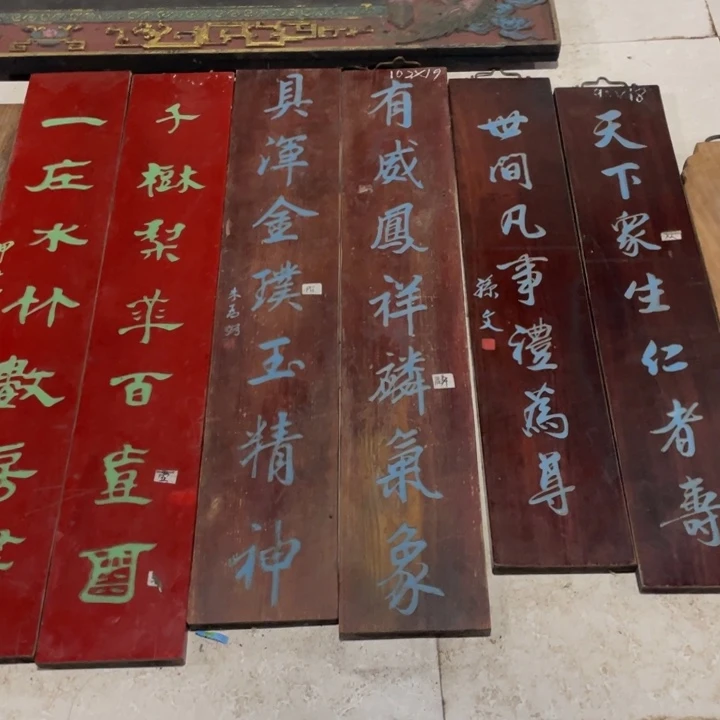 天下眾生仁者壽
世間凡事禮為尊
孫文
有威鳳祥磷氣象
具渾金璞玉精神
千樹梨華百壺
一庄水竹數房
102×19